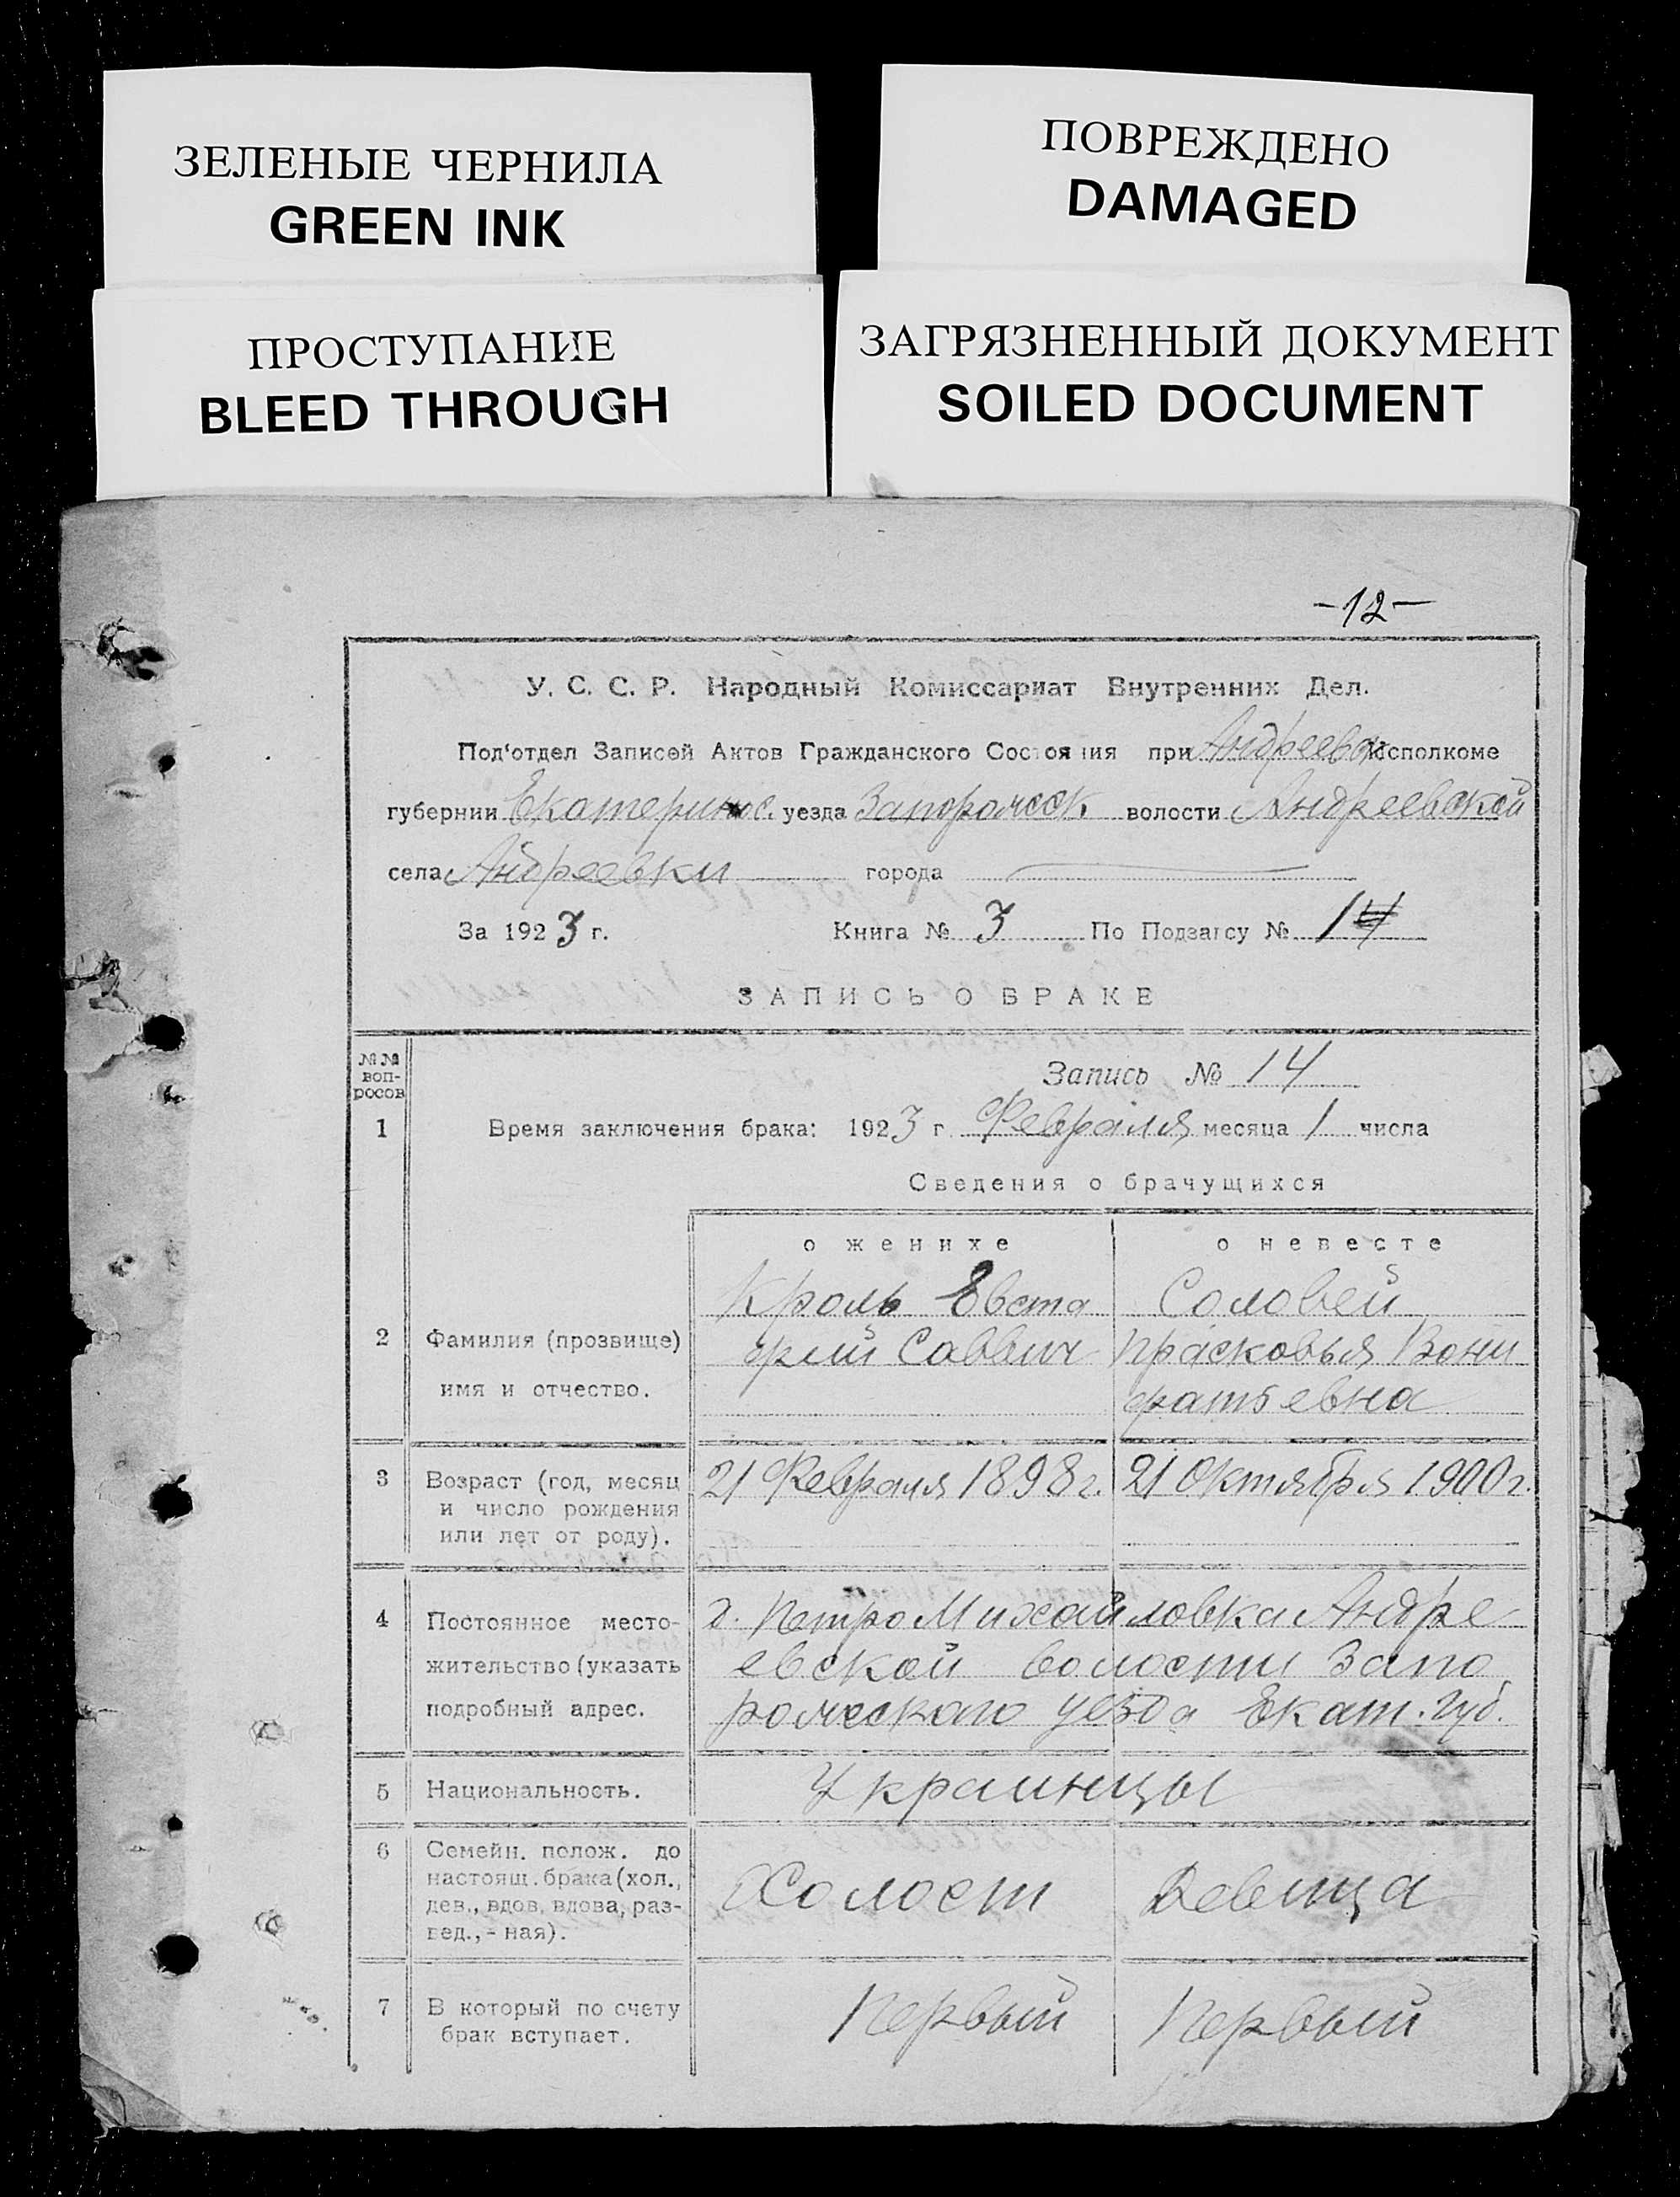 ЗЕЛЕНЫЕ ЧЕРНИЛА
GREEN INK
ПОВРЕЖДЕНО
DAMAGED
ПРОСТУПАНИЕ
BLEED THROUGH
ЗАГРЯЗНЕННЫЙ ДОКУМЕНТ
SOILED DOCUMENT
-12-
У. С. С. Р. Народный Комиссариат Внутренних Дел.
Под'отдел Записей Актов Гражданского Состояния при Андреевск Исполкоме
губернии Екатеринос. уезда Запорожск волости Андреевской
села Андреевки города
За 1923 г. Книга № 3 По Подзагсу № 14
ЗАПИСЬ О БРАКЕ
№№ воп-росов
Запись № 14
1 Время заключения брака: 1923 г. Февраля месяца 1 числа
Сведения о брачущихся
о женихе о невесте
Кроль Евста Соловей
2 Фамилия (прозвище) фий Саввич Прасковья Вони
имя и отчество. фатьевна
3 Возраст (год, месяц 21 Февраля 1898 г. 21 Октября 1900 г.
и число рождения
или лет от роду).
4 Постоянное место- д. ПетроМихайловка Андре
жительство (указать евской волости Запо
подробный адрес. рожского уезда Екат. губ.
5 Национальность. Украинцы
6 Семейн. полож. до
настоящ. брака (хол., Холост Девица
дев., вдов, вдова, раз-
вед., - ная).
7 В который по счету Первый Первый
брак вступает.